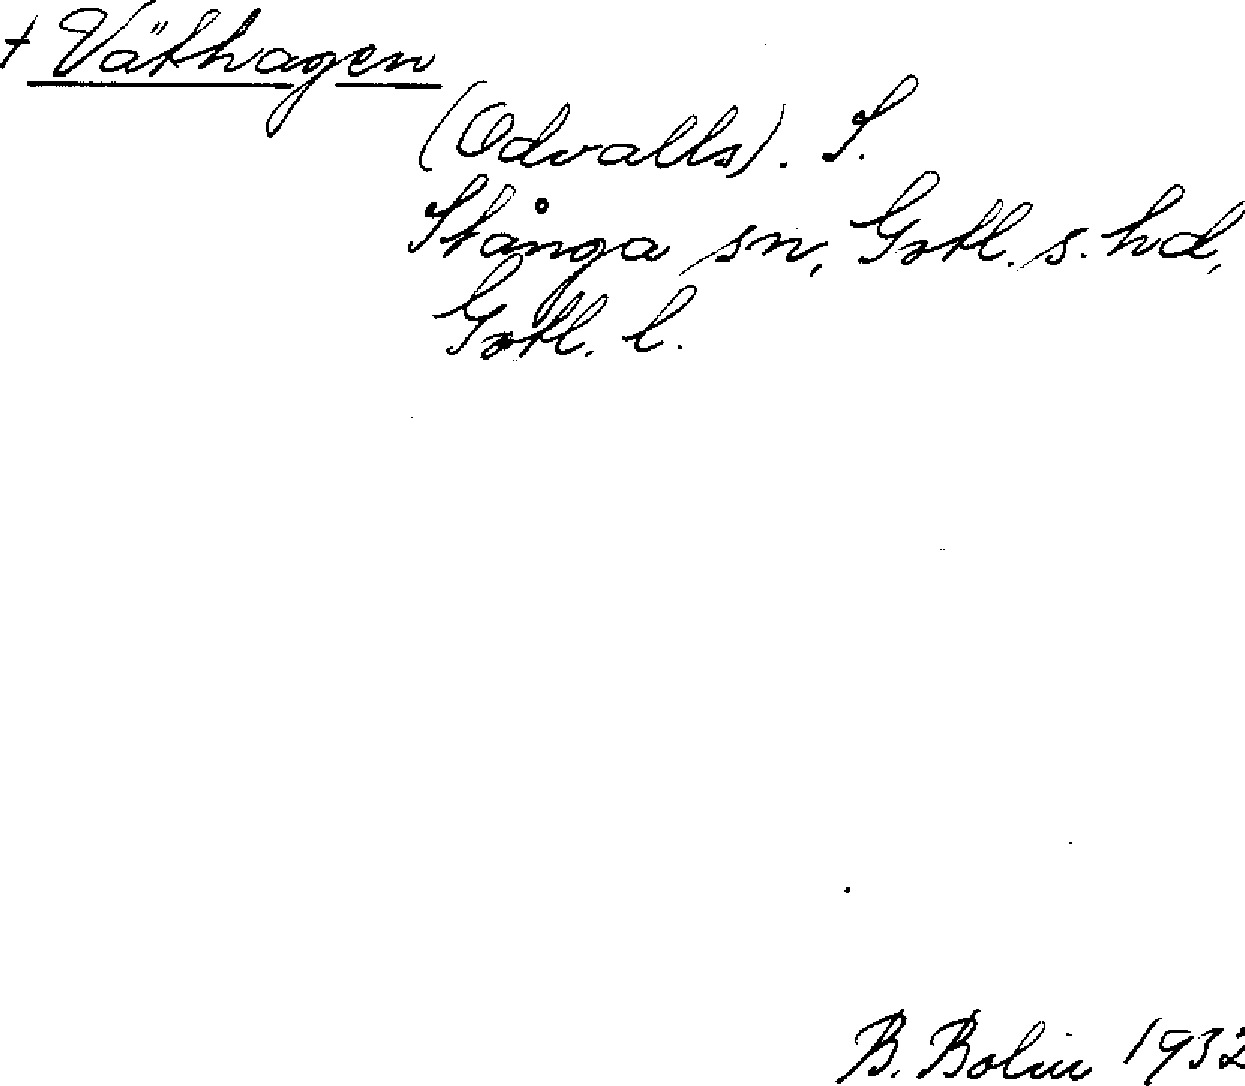 + Väthagen
(Odvalls). S.
Stånga sn, Gotl. s. hd,
Gotl. l.
B. Bolin 1932